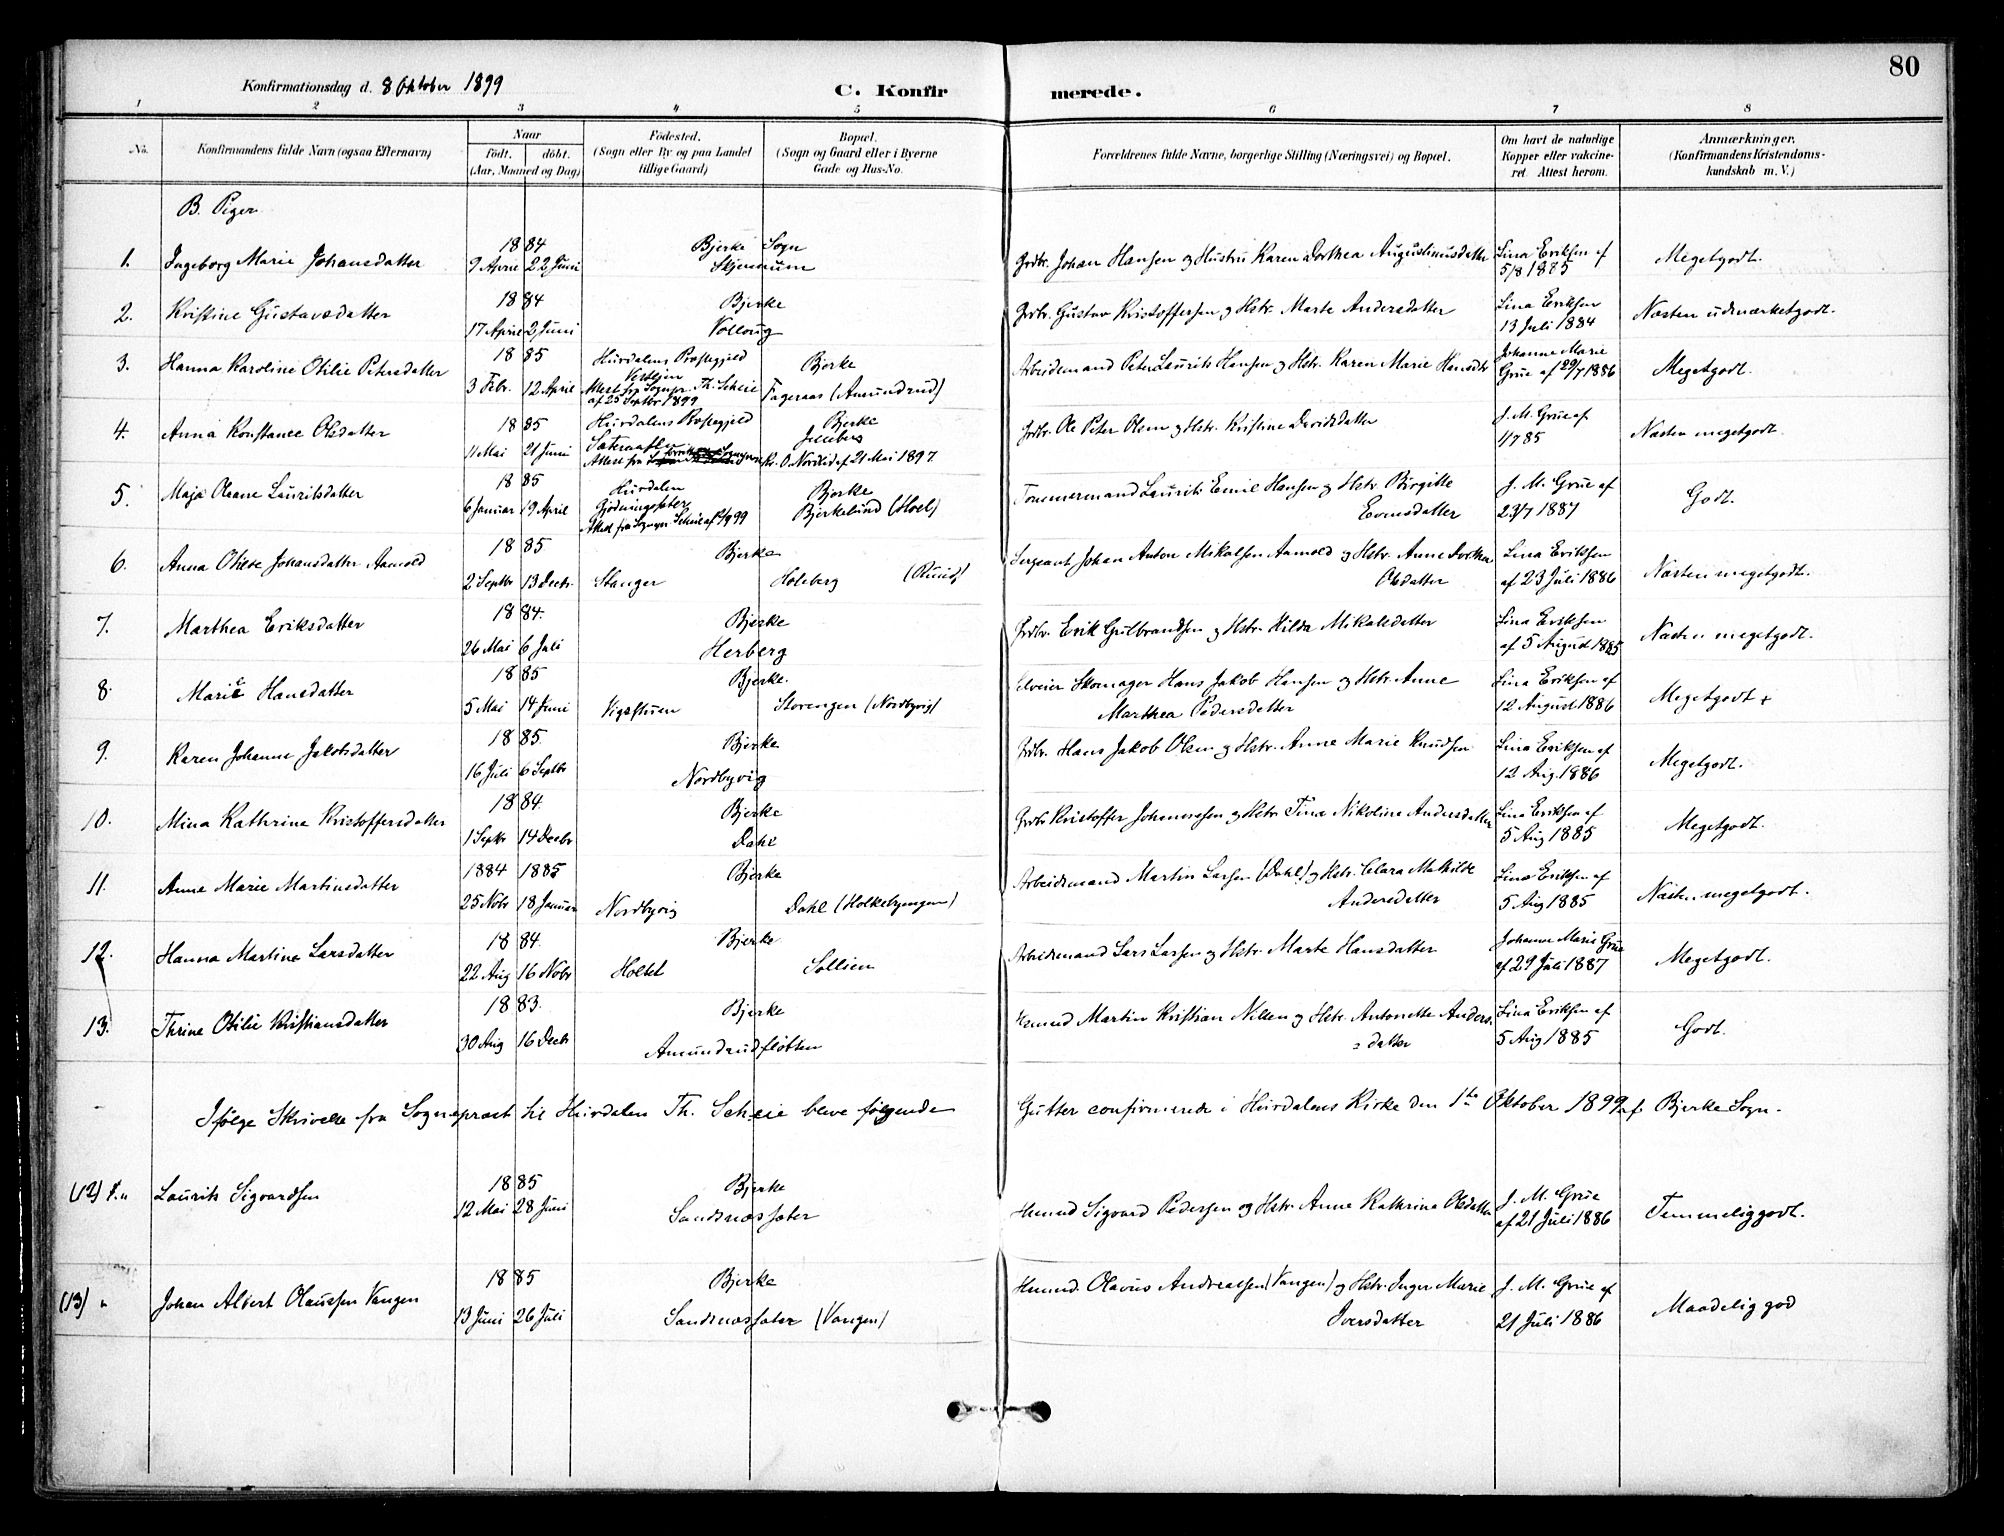 80
Konfirmationsdag d. 8 Oktober 1899
C. Konfirmerede.
1 2 3 4 5 6 7 8
No.
Konfirmandens fulde Navn (ogsaa Efternavn)
Naar
født. døbt.
(Aar, Maaned og Dag)
Fødested.
(Sogn eller By og paa Landet
tillige Gaard)
Bopæl.
(Sogn og Gaard eller i Byerne
Gade og Hus-No.
Forældrenes fulde Navne, borgerlige Stilling (Næringsvei) og Bopæl.
Om havt de naturlige
Kopper eller vakcine-
ret. Attest herom.
Anmærkninger.
(Konfirmandens Kristendoms-
kundskab m. V.)
B. Piger
1884 Bjerke Sogn
1. Ingeborg Marie Johansdatter 9 April 22 Juni Skjennum Grdbr. Johan Hansen og Hustru Karen Dorthea Augustinusdatter Lina Eriksen af
5/8 1885 Megetgodt.
1884 Bjerke
2. Kristine Gustavsdatter 17 April 2 Juni Volloug Grdbr. Gustav Kristoffersen og Hstr. Marte Andersdatter Lina Eriksen
13 Juli 1884 Næsten udmærketgodt.
1885 Hurdalens Præstegjeld Bjerke
3. Hanna Karoline Otilie Petersdatter 3 Febr. 12 April
Attest fra Sognepr. Th. Scheie
af 25 Septbr 1899 Fageraas (Amundrud) Arbeidemand Peter Laurits Hansen og Hstr. Karen Marie Hansdtr Johanne Marie
Grue af 29/7 1886 Megetgodt.
1885 Hurdalens Præstegjeld Bjerke
4. Anna Konstance Olsdatter 11 Mai 21 Juni
Attest fra O. Nordlid af 21 Mai 1897. Grdbr. Ole Peter Olsen og Hstr. Kristine Davidsdatter J. M. Grue af
1/7 85 Næsten megetgodt.
1885 Hurdalen Bjerke
5. Maja Oleane Lauritsdatter 6 Januar 19 April
Attest fra Sognepr. Scheie af 99 Bjerkelund (Hoel) Tømmermand Laurits Emil Hansen og Hstr. Birgitte
Evensdatter J. M. Grue af
23/7 1887 Godt.
1885 Bjerke
6. Anna Otilie Johansdatter Aamold 2 Septbr 13 Decbr. Stanger Holsberg (Ruud) Sergeant Johan Anton Mikalsen Aamold og Hstr. Anne Dorthea
Olsdatter Lina Eriksen
af 23 Juli 1886 Næsten megetgodt.
1884. Bjerke
7. Marthea Eriksdatter 26 Mai 6 Juli Herberg Grdbr. Erik Gulbrandsen og Hstr. Hilda Mikalsdatter Lina Eriksen
af 5 August 1885 Næsten megetgodt.
1885 Bjerke.
8. Marie Hansdatter 5 Mai 14 Juni Vigstuen Storengen (Nordbyvig) Selveier Skomager Hans Jakob Hansen og Hstr. Anne
Marthea Pedersdatter Lina Eriksen af
12 August 1886 Megetgodt +
1885. Bjerke
9. Karen Johanne Jakobsdatter 16 Juli 6 Septbr Nordbyvig Grdbr. Hans Jakob Olsen og Hstr. Anne Marie Knudsen Lina Eriksen af
12 Aug. 1886 Megetgodt.
1884. Bjerke
10. Mina Kathrine Kristoffersdatter 1 Septbr 14 Decbr Dahl Grdbr Kristoffer Johannesen og Hstr. Tina Nikoline Andersdatter Lina Eriksen af
5 Aug 1885 Megetgodt.
1884 1885 Bjerke
11. Anne Marie Martinsdatter 25 Novbr 18 Januar Nordbyvig Dahl (Holkebyengen) Arbeidsmand Martin Larsen (Dahl) og Hstr. Clara Mathilde
Andersdatter Lina Eriksen af
5 Aug 1885 Næsten megetgodt.
1884. Bjerke
12. Hanna Martine Larsdatter 22 Aug 16 Novbr Holtet Sollien Arbeidemand Lars Larsen og Hstr. Marte Hansdatter Johanne Marie Grue
af 29 Juli 1887 Megetgodt.
1883. Bjerke
13. Thrine Otilie Kristiansdatter 30 Aug 16 Decbr Amundrudfløtten Husmd Martin Kristian Nilsen og Hstr. Antonette Anders-
datter Lina Eriksen af
5 Aug 1885 Godt.
Ifølge Skrivelse fra Sognepræst til Hurdalen Th. Scheie bleve følgende Gutter confirmerede i Hurdalens Kirke den 1ste Oktober 1899 af Bjerke Sogn.
1885 Bjerke
(12) 1. " Laurits Sigvardsen 12 Mai 28 Juni Sandnæssæter Husmd Sigvard Pedersen og Hstr. Anne Kathrine Olsdatter J. M. Grue
af 21 Juli 1886 Temmeliggodt.
1885 Bjerke
(13) " Johan Albert Olaussen Vangen 13 Juni 26 Juli Sandnæssæter (Vangen) Husmd. Olavus Andreassen (Vangen) og Hstr. Inger Marie
Iversdatter J. M. Grue af
21 Juli 1886 Maadelig god